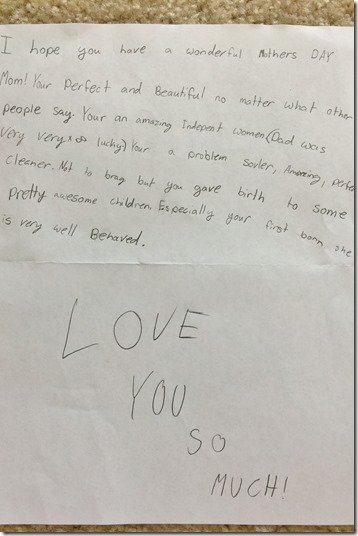 I hope you have a wonderful Mothers DAY
Mom! Your Perfect and Beautiful no matter what other
people say. Your an amazing Indepent women (Dad was
very very x ∞ lucky) Your a problem sovler, Amazing, perfe
cleaner. Not to brag but you gave birth to some
pretty awesome children. Especially your first born she
is very well Behaved.
LOVE
YOU
SO
MUCH!